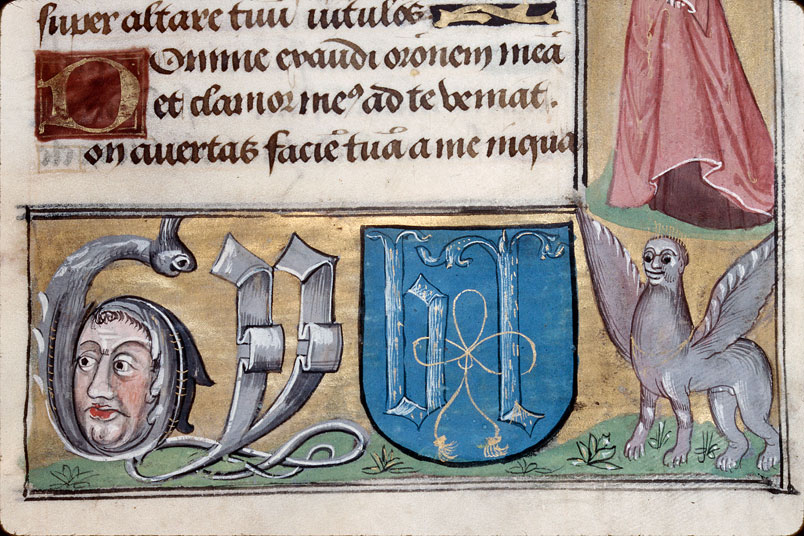 super altare tuū vitulos
Domine exaudi orōnem meā
et clamor meꝰ ad te veniat.
Non avertas faciē tuā a me inqua